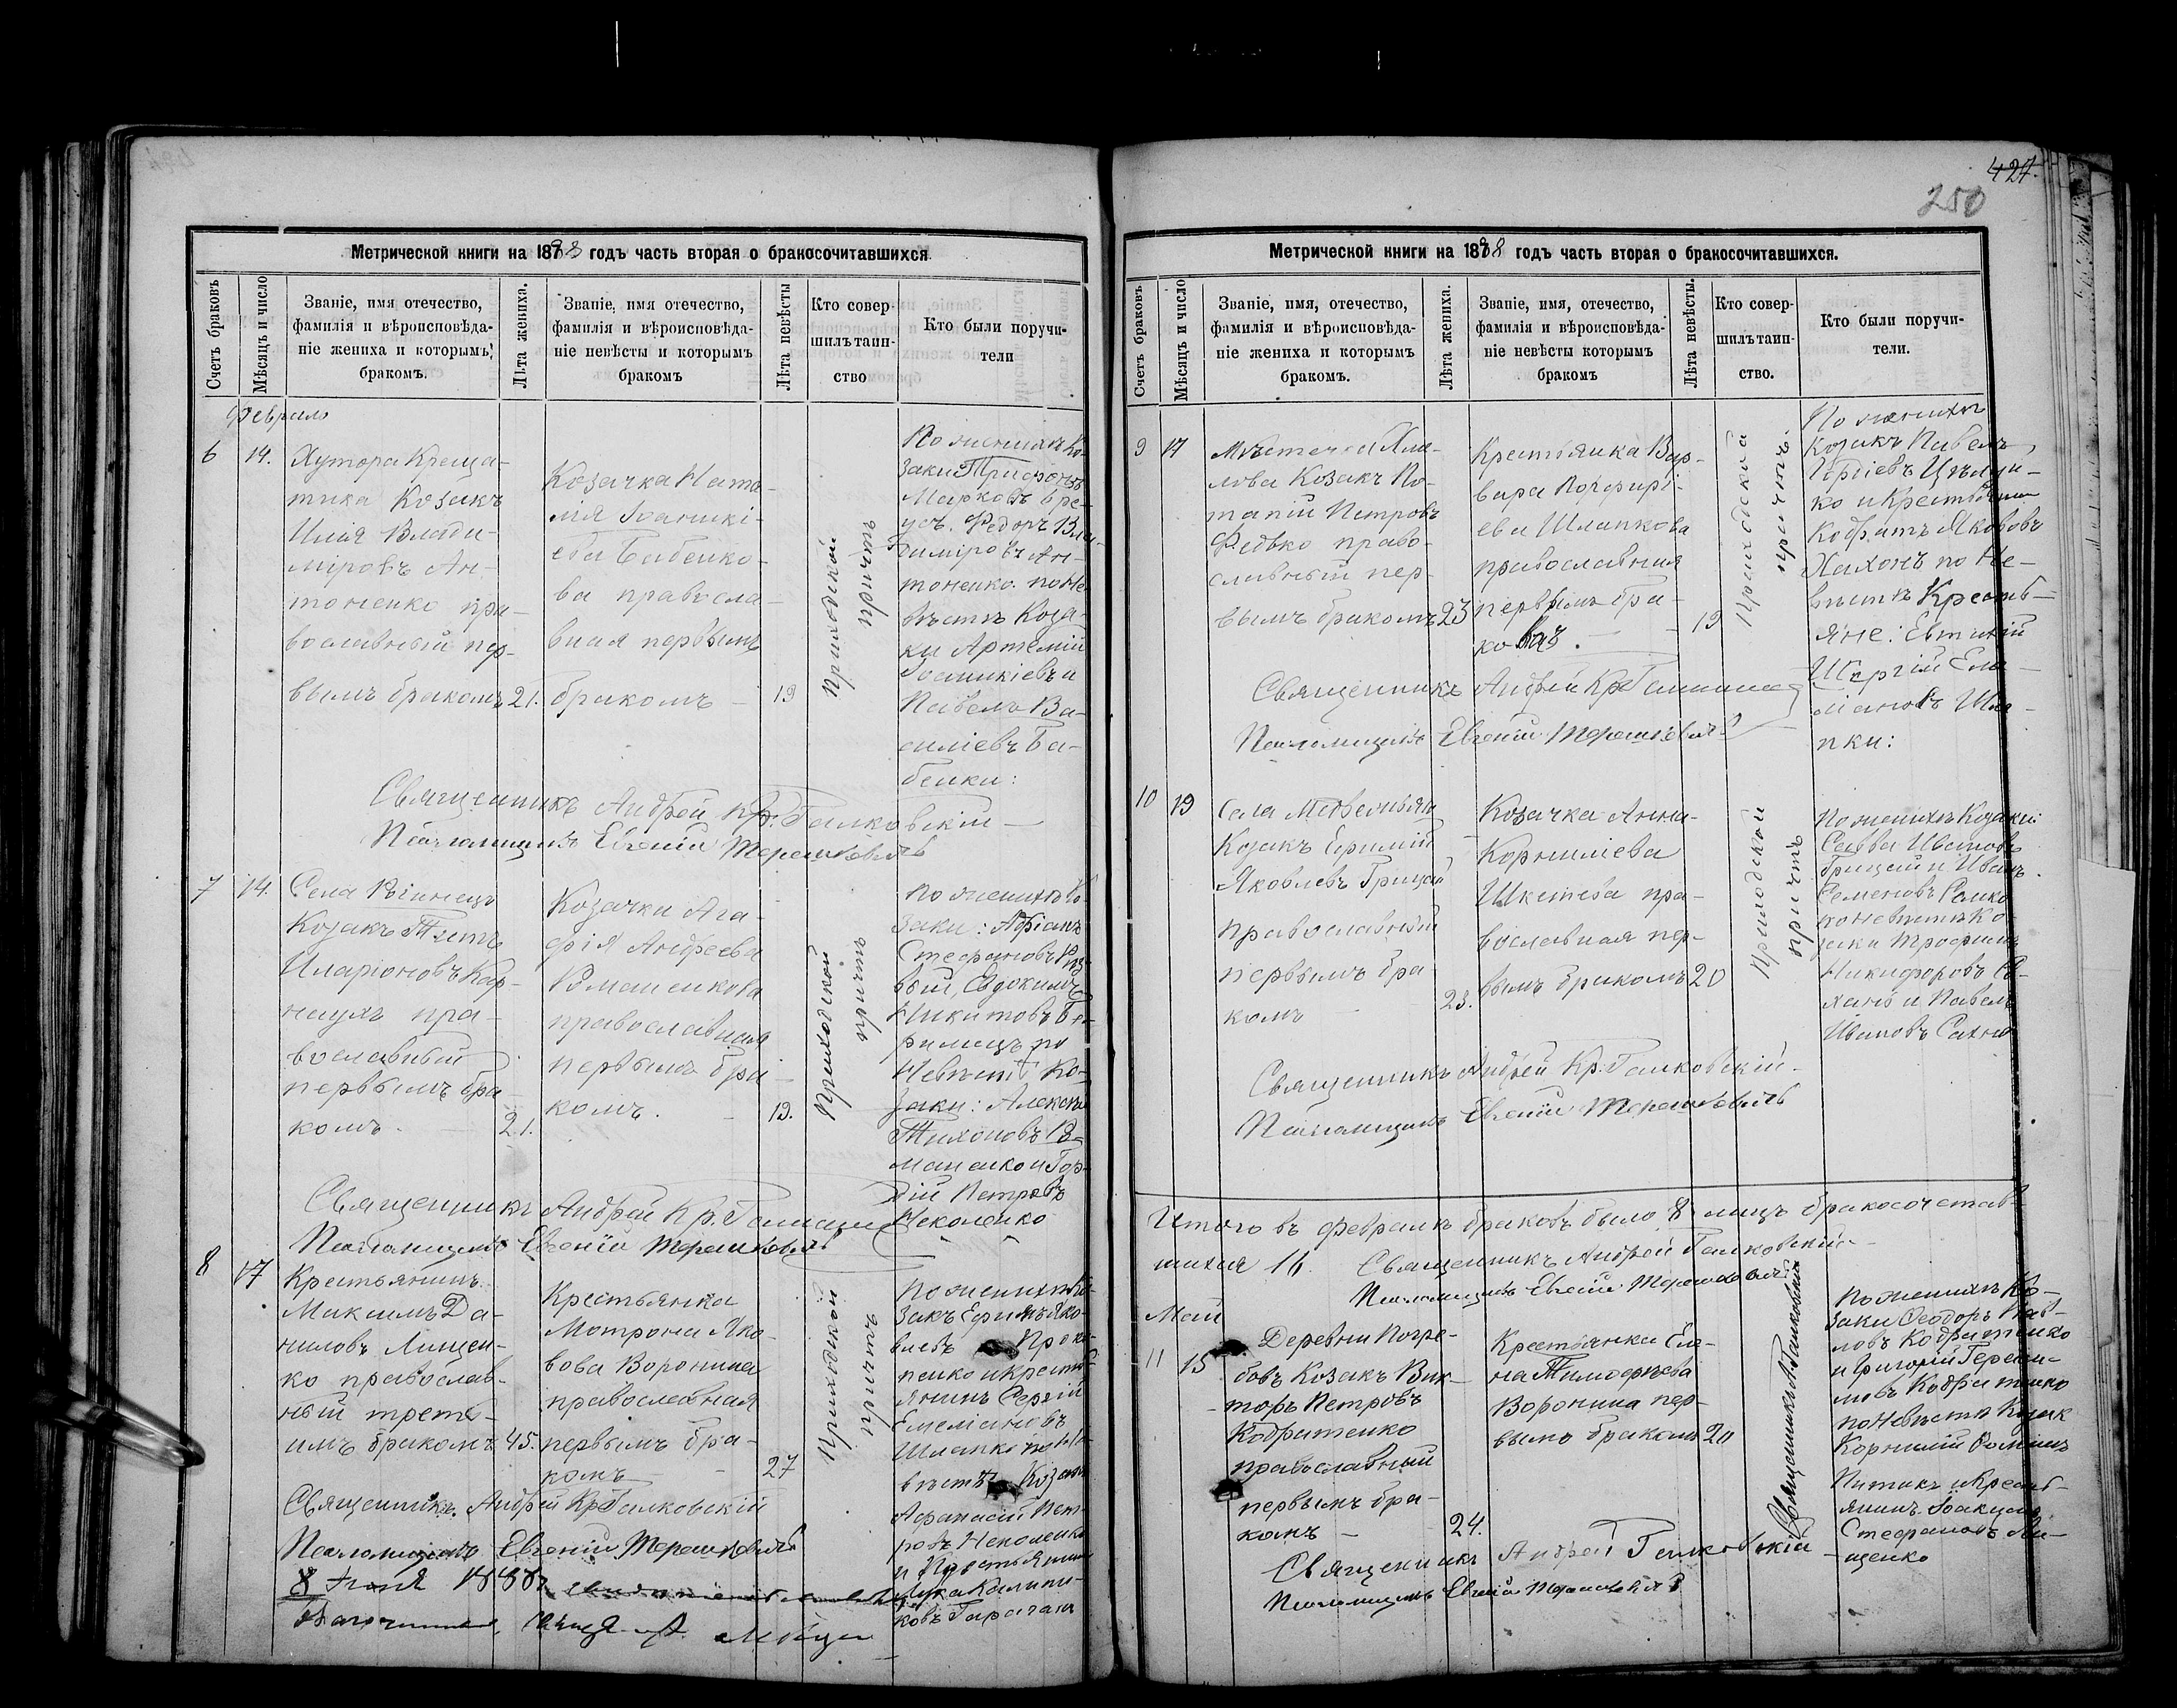 427.
250
Метрической книги на 1888 годъ часть вторая о бракосочитавшихся
Счетъ браковъ
Мѣсяцъ и число
Званіе, имя отечество,
фамилія и вѣроисповѣда-
ніе жениха и которымъ
бракомъ.
Лѣта жениха.
Званіе, имя отечество,
фамилія и вѣроисповѣда-
ніе невѣсты и которымъ
бракомъ
Лѣта невѣсты
Кто совер-
шилъ таин-
ство
Кто были поручи-
тели
Февраль
6
14.
Хутора Креща-
тика Козакъ
Илія Влади-
міровъ Ан-
тоненко пра-
вославный пер-
вымъ бракомъ
21.
Козачка Ната-
лія Іоаникі-
ева Бабенко-
ва правосла-
вная первымъ
бракомъ
19
Приходской
причтъ
По женихѣ Ко-
заки Трифонъ
Марковъ
Федоръ Вла-
диміровъ Ан-
тоненко по не
вѣстѣ Коза-
ки Артемій
Іоаникіевъ и
Павелъ Ва-
силіевъ Ба-
бенки:
Священникъ Андрей Кр. Галковскій
Псаломщикъ Евгеній Терешкевичъ
7
14.
Села
Козакъ Титъ
Иларіоновъ Кар-
наухъ пра-
вославный
первымъ бра-
комъ.
21.
Козачки Ага-
фія Андреева
Романенкова
православная
первымъ бра-
комъ.
19.
Приходской
причтъ
по женихѣ Ко-
заки: Адріанъ
Стефановъ
вый, Евдокимъ
Никитовъ
по
Невѣстѣ Ко-
заки: Алексѣй
Тихоновъ Ро-
маненко и Гор-
дій Петровъ
Неколенко
Священникъ Андрей Кр. Галковскій
Псаломщикъ Евгеній Терешкевичъ
8
17
Крестьянинъ
Максимъ Да-
ниловъ Лищен-
ко православ-
ный треть-
имъ бракомъ
45.
Крестьянка
Мотрона Яко-
вова Воронина
православная
первымъ бра-
комъ
27
Приходской
причтъ
по женихѣ Ко-
закъ Ефимъ Яко-
влевъ Проко-
пенко и Кресть-
янинъ Сергій
Емеліановъ
Шлапко по Не-
вѣстѣ Козакъ
Афанасій Пет-
ровъ Неколенко
и Крестьянинъ
Лука Калини-
ковъ Гарагань
Священникъ Андрей Кр. Галковскій
Псаломщикъ Евгеній Терешкевичъ
8 1888
Метрической книги на 1888 годъ часть вторая о бракосочитавшихся.
Счетъ браковъ
Мѣсяцъ и число
Званіе, имя, отечество,
фамилія и вѣроисповѣда-
ніе жениха и которымъ
бракомъ.
Лѣта жениха.
Званіе, имя, отечество,
фамилія и вѣроисповѣда-
ніе невѣсты которымъ
бракомъ
Лѣта невѣсты.
Кто совер-
шилъ таин-
ство.
Кто были поручи-
тели.
9
17
Мѣстечка Яго-
Козакъ По-
тапій Петровъ
Федько право-
славный пер-
вымъ бракомъ
23
Крестьянка Вар-
вара Порфирі-
ева Шлапкова
православная
первымъ бра-
комъ.
19
Приходской
причтъ.
По женихѣ
Козакъ Павелъ
Цѣлуй-
ко и Крестьянинъ
Кодратъ Якововъ
Хахонъ по Не-
вѣстѣ Кресть-
яне: Евтихій
и Сергій Еме-
ліановъ Шла-
пки:
Священникъ Андрей Кр. Галковскій
Псаломщикъ Евгеній Терешкевичъ
10
19
Села
Козакъ Ефимій
Яковлевъ Грицай
православный
первымъ бра-
комъ
23.
Козачка Анна
Корниліева
пра-
вославная пер-
вымъ бракомъ
20
Приходской
причтъ
По женихѣ Козаки:
Савва Ивановъ
Грицай и Иванъ
Семеновъ
по невѣстѣ Ко-
заки Трофимъ
Никифоровъ Са-
хань и Павелъ
Ивановъ Сахно
Священникъ Андрей Кр. Галковскій.
Псаломщикъ Евгеній Терешкевичъ
Итого въ февралѣ браковъ было 8 лицъ бракосочетав-
шихся 16. Священникъ Андрей Галковскій
Псаломщикъ Евгеній Терешкевичъ
Май
11
15
Деревни Погре-
бовъ Козакъ Вик-
торъ Петровъ
Кодратенко
православный
первымъ бра-
комъ
24.
Крестьянка Еле-
на Тимофеева
Воронина пер-
вымъ бракомъ
20
Священникъ А. Галковскій
По женихѣ Ко-
заки Феодоръ Пав-
ловъ Кодратенко
и Григорій Гераси-
мовъ Кодратенко
по Невѣстѣ Козакъ
Корнилій
и Кресть-
янинъ Іоакимъ
Стефановъ Ли-
щенко
Священникъ Андрей Галковскій
Псаломщикъ Евгеній Терешкевичъ